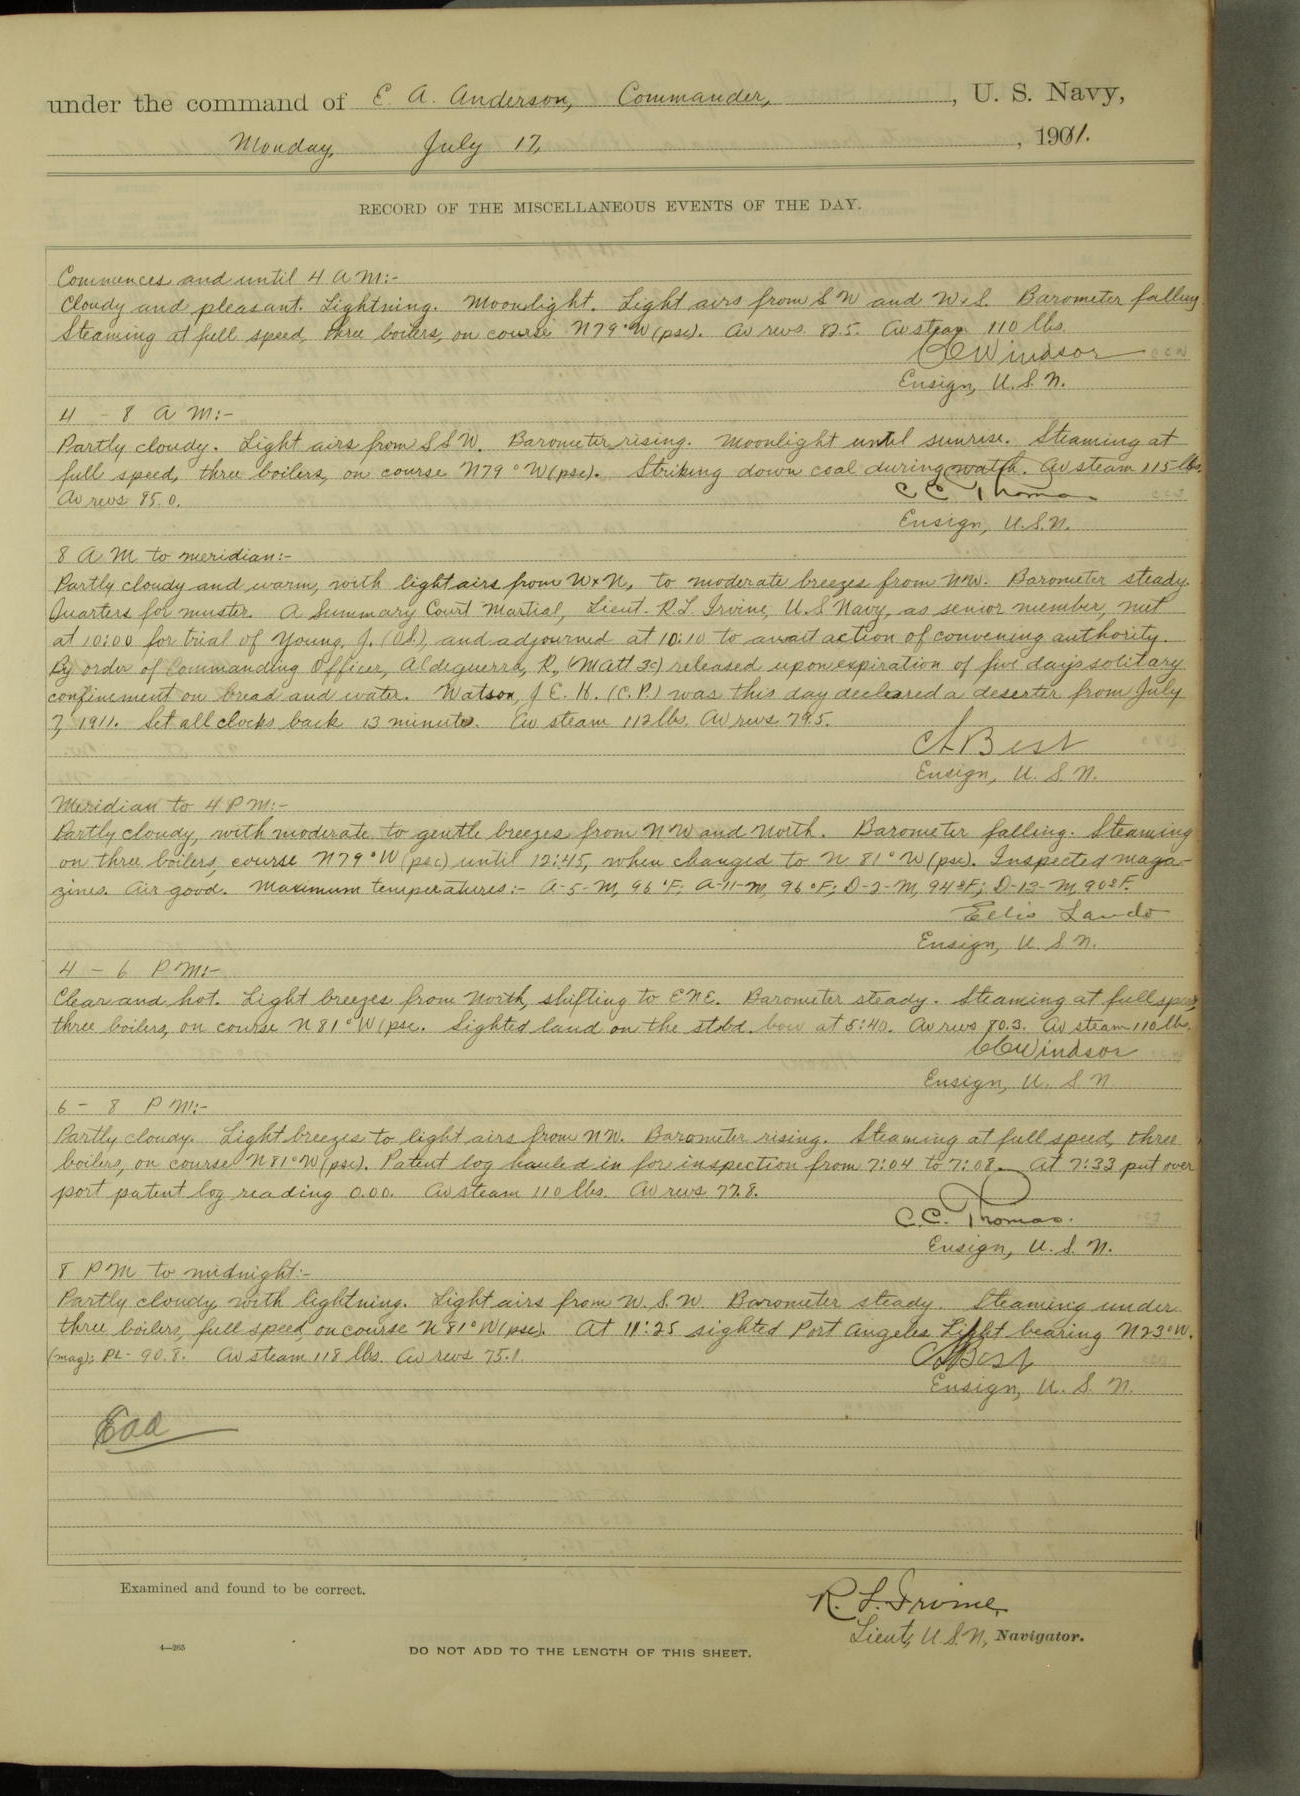 under the command of E. A. Anderson, Commander, , U. S. Navy,
Monday, July 17, , 1911.
RECORD OF THE MISCELLANEOUS EVENTS OF THE DAY.
Commences and until 4 A M:-
Cloudy and pleasant. Lightning. Moonlight. Light airs from S W and W x S. Barometer falling
Steaming at full speed, three boilers, on course N79°W (psc). Av revs. 82.5. Av steam 110 lbs.
C C Windsor
Ensign, U. S. N.
4 - 8 A M:-
Partly cloudy. Light airs from S S W. Barometer rising. Moonlight until sunrise. Steaming at
full speed, three boilers, on course N79°W (psc). Striking down coal during watch. Av steam 115 lbs.
Av revs 85.0.
C C Thomas
Ensign, U.S.N.
8 A M to meridian:-
Partly cloudy and warm, with light airs from W x N, to moderate breezes from NW. Barometer steady.
Quarters for muster. A Summary Court Martial, Lieut. R. L. Irvine, U. S Navy, as senior member, met
at 10:00 for trial of Young, J. (O.S.), and adjourned at 10:10 to await action of convening authority.
By order of Commanding Officer, Aldeguerra, R, (M Att 3c) released upon expiration of five days solitary
confinement on bread and water. Watson, J E. H. (C.P.) was this day declared a deserter from July
7, 1911. Set all clocks back 13 minutes. Av steam 112 lbs. Av revs 79.5.
C L Best
Ensign, U. S. N.
Meridian to 4 P M:-
Partly cloudy, with moderate to gentle breezes from N W and North. Barometer falling. Steaming
on three boilers, course N79°W (psc) until 12:45, when changed to N 81° W (psc). Inspected maga-
zines. Air good. Maximum temperatures:- A-5-M, 96°F; A-11-M, 96°F; D-2-M, 94°F; D-13-M, 90°F.
Ellis Lando
Ensign, U. S. N.
4 - 6 P M:-
Clear and hot. Light breezes from North, shifting to E N E. Barometer steady. Steaming at full speed,
three boilers, on course N 81° W (psc. Sighted land on the stbd. bow at 5:40. Av revs 80.3. Av steam 110 lbs.
C C Windsor
Ensign, U. S. N
6 - 8 P M:-
Partly cloudy. Light breezes to light airs from NW. Barometer rising. Steaming at full speed, three
boilers, on course N 81° W (psc). Patent log hauled in for inspection from 7:04 to 7:08. At 7:33 put over
port patent log reading 0.00. Av steam 110 lbs. Av revs 77.8.
C. C. Thomas.
Ensign, U. S. N.
8 P M to midnight:-
Partly cloudy, with lightning. Light airs from W. S. W. Barometer steady. Steaming under
three boilers, full speed, on course N 81° W (psc). At 11:25 sighted Port Angeles Light bearing N23°W.
(mag); PL- 90.8. Av steam 118 lbs. Av revs 75.1.
C L Best
Ensign, U. S. N.
Eaa
Examined and found to be correct.
R. L. Irvine,
Lieut, U. S. N, Navigator.
4—265
DO NOT ADD TO THE LENGTH OF THIS SHEET.